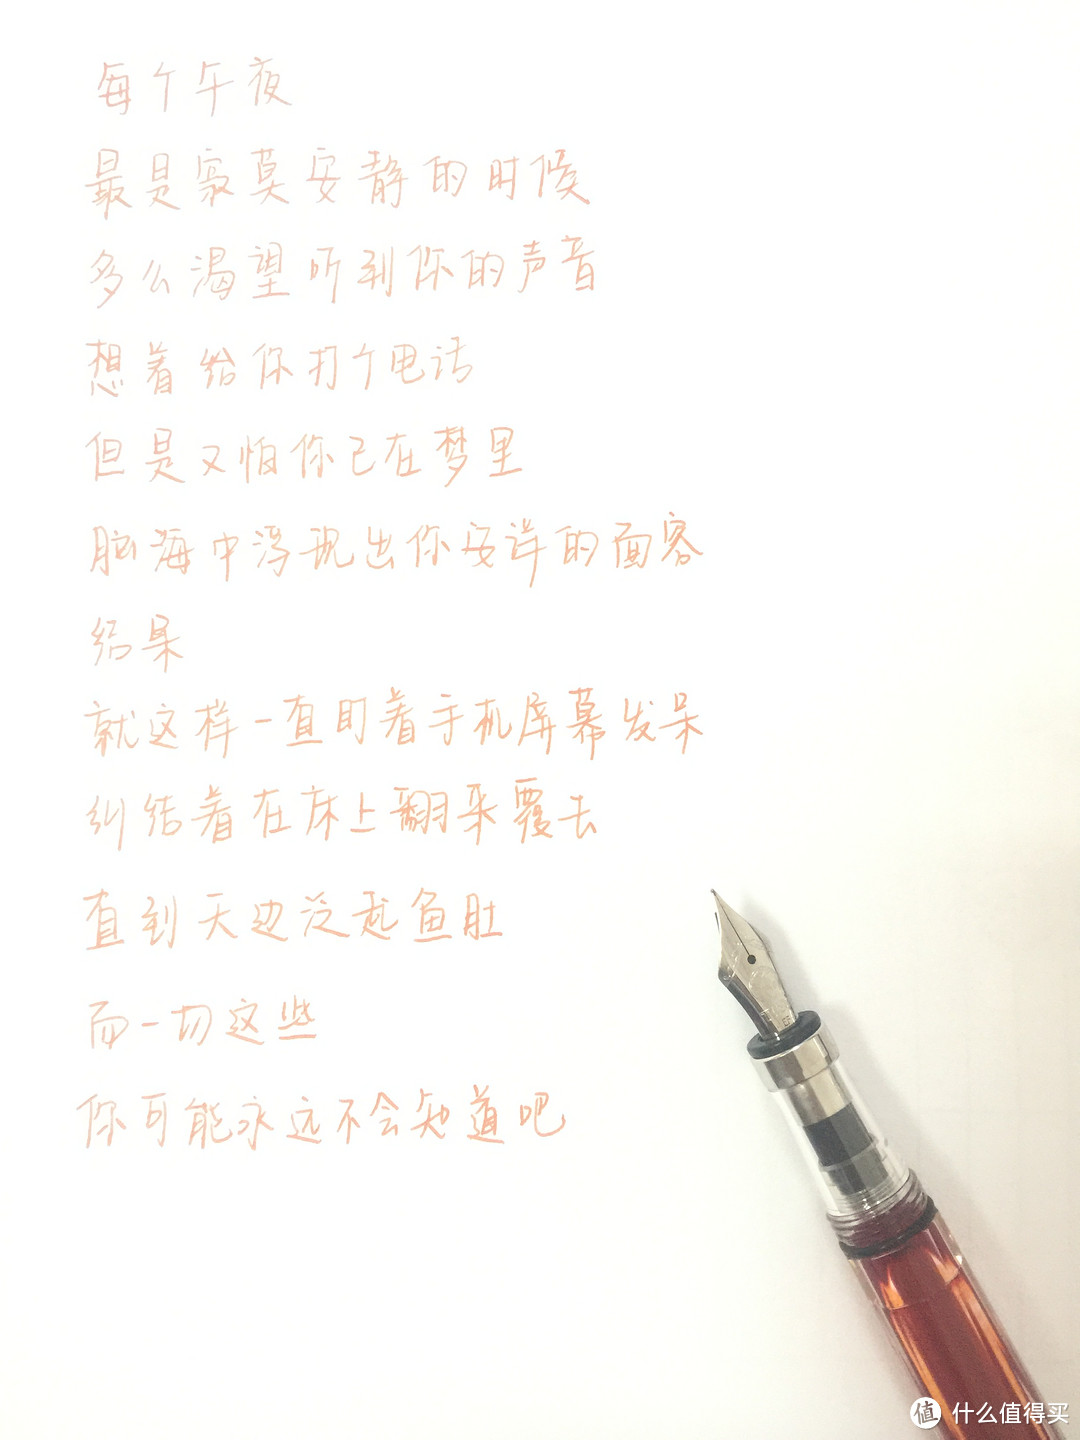 每个午夜
最是寂莫安静的时候
多么渴望听到你的声音
想着给你打个电话
但是又怕你已在梦里
脑海中浮现出你安详的面容
结果
就这样一直盯着手机屏幕发呆
纠结着在床上翻来覆去
直到天边泛起鱼肚
而一切这些
你可能永远不会知道吧
值 什么值得买